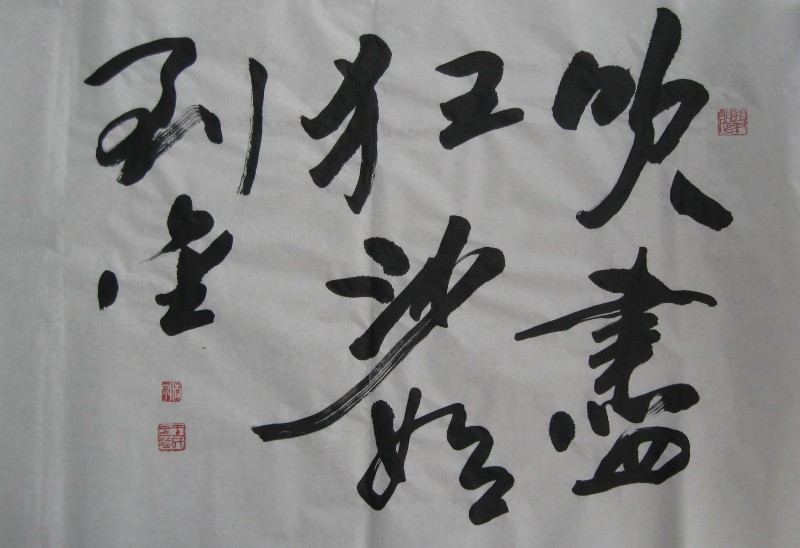 吹盡
狂沙始
到金